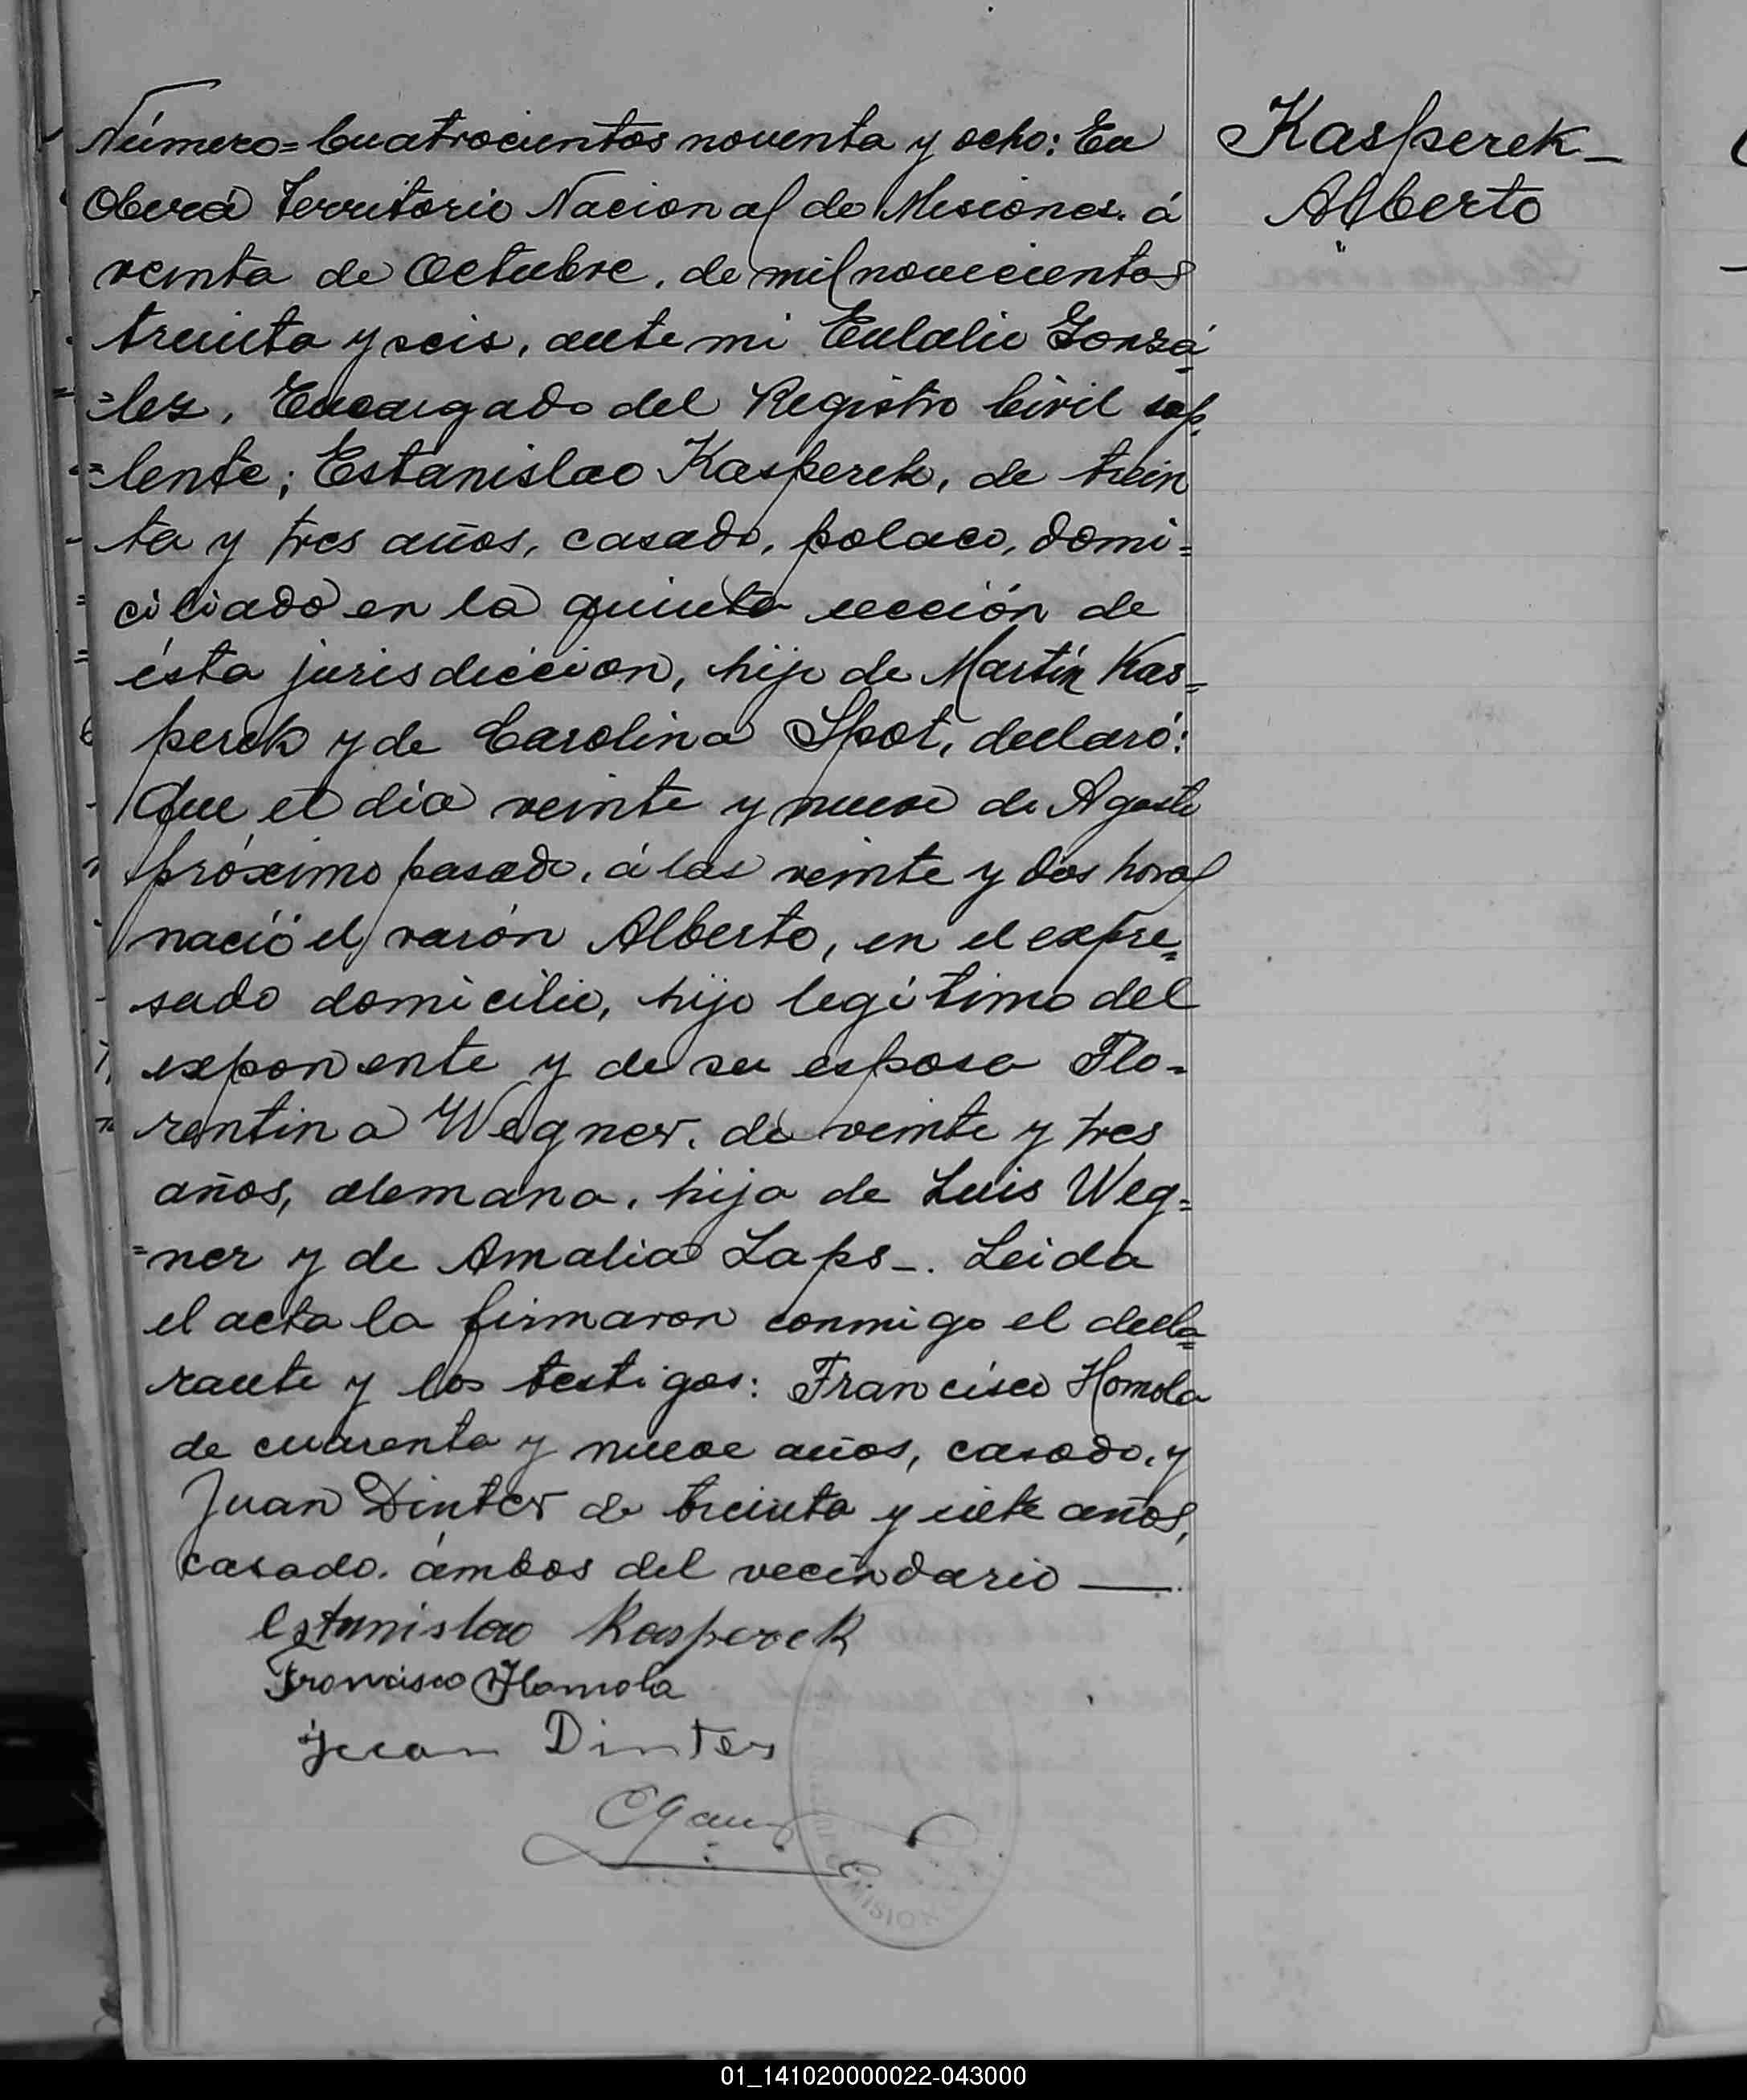 Número=Cuatrocientos noventa y ocho: En
Oberá Territorio Nacional de Misiones. á
veinta de Octubre, de mil novecientos
treinta y seis, ante mi Eulalio Gonzá
=lez, Encargado del Registro Civil sup
=lente; Estanislao Kasperek, de trein
ta y tres años, casado, polaco, domi=
ciliado en la quinta sección de
ésta jurisdicción, hijo de Martín Kas=
perek y de Carolina Spot, declaró:
Que el día veinte y nueve de Agosto
próximo pasado, á las veinte y dos horas
nació el varón Alberto, en el expre=
sado domicilio, hijo legítimo del
exponente y de su esposa Flo-
rentina Wegner, de veinte y tres
años, alemana, hija de Luis Weg=
=ner y de Amalia Laps-. Leida
el acta la firmaron conmigo el decla=
rante y los testigos: Francisco Homola
de cuarenta y nueve años, casado, y
Juan Dinter de treinta y siete años,
casado, ámbos del vecindario —.
Estanislao Kasperek
Francisco Homola
Juan Dinter
Kasperek-
Alberto
"
01_141020000022-043000